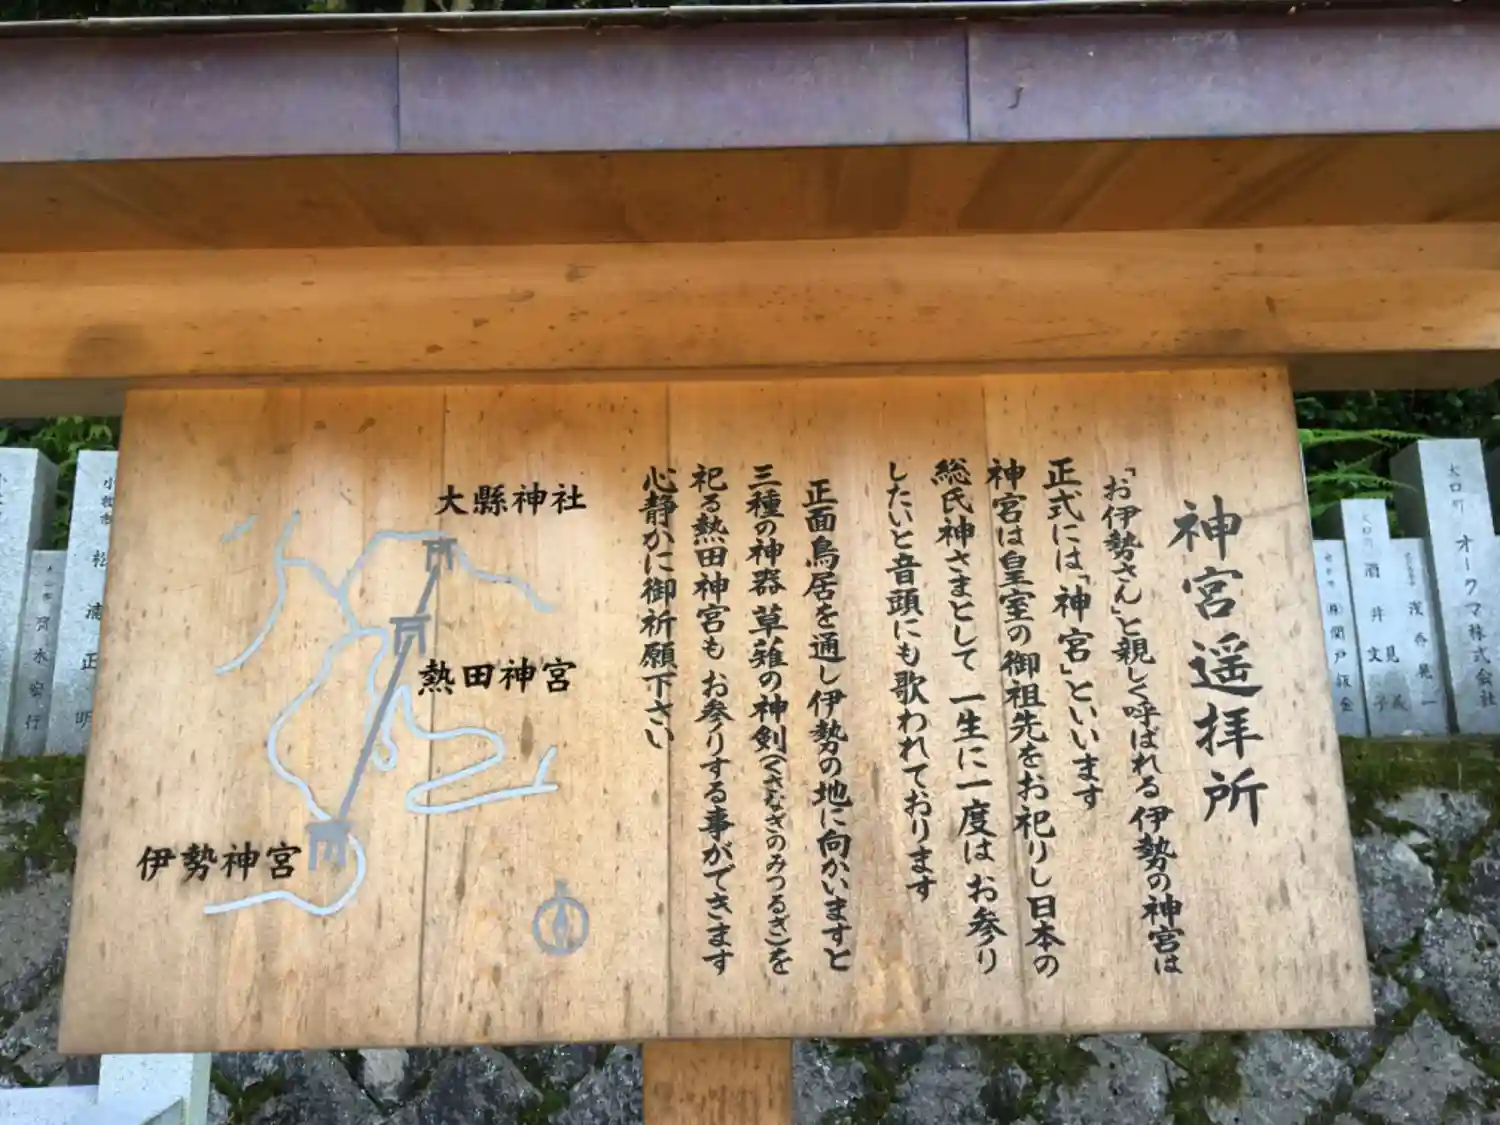 神宮遥拝所
「お伊勢さん」と親しく呼ばれる伊勢の神宮は
正式には「神宮」といいます
神宮は皇室の御祖先をお祀りし日本の
総氏神さまとして 一生に一度は お参り
したいと音頭にも歌われております
正面鳥居を通し伊勢の地に向かいますと
三種の神器 草薙の神剣(くさなぎのみつるぎ)を
祀る熱田神宮も お参りする事ができます
心静かに御祈願下さい
大縣神社
熱田神宮
伊勢神宮
大口町 オークマ株式会社
酒井文子
松浦正明